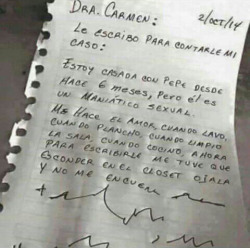 DRA. CARMEN:
2/OCT/14
LE ESCRIBO PARA CONTARLE MI
CASO:
ESTOY CASADA CON PEPE DESDE
HACE 6 MESES, PERO ÉL ES
UN MANIÁTICO SEXUAL.
ME HACE EL AMOR, CUANDO LAVO,
CUANDO PLANCHO, CUANDO LIMPIO
LA SALA, CUANDO COCINO, AHORA
PARA ESCRIBIRLE ME TUVE QUE
ESCONDER EN EL CLOSET OJALA
Y NO ME ENCUEN